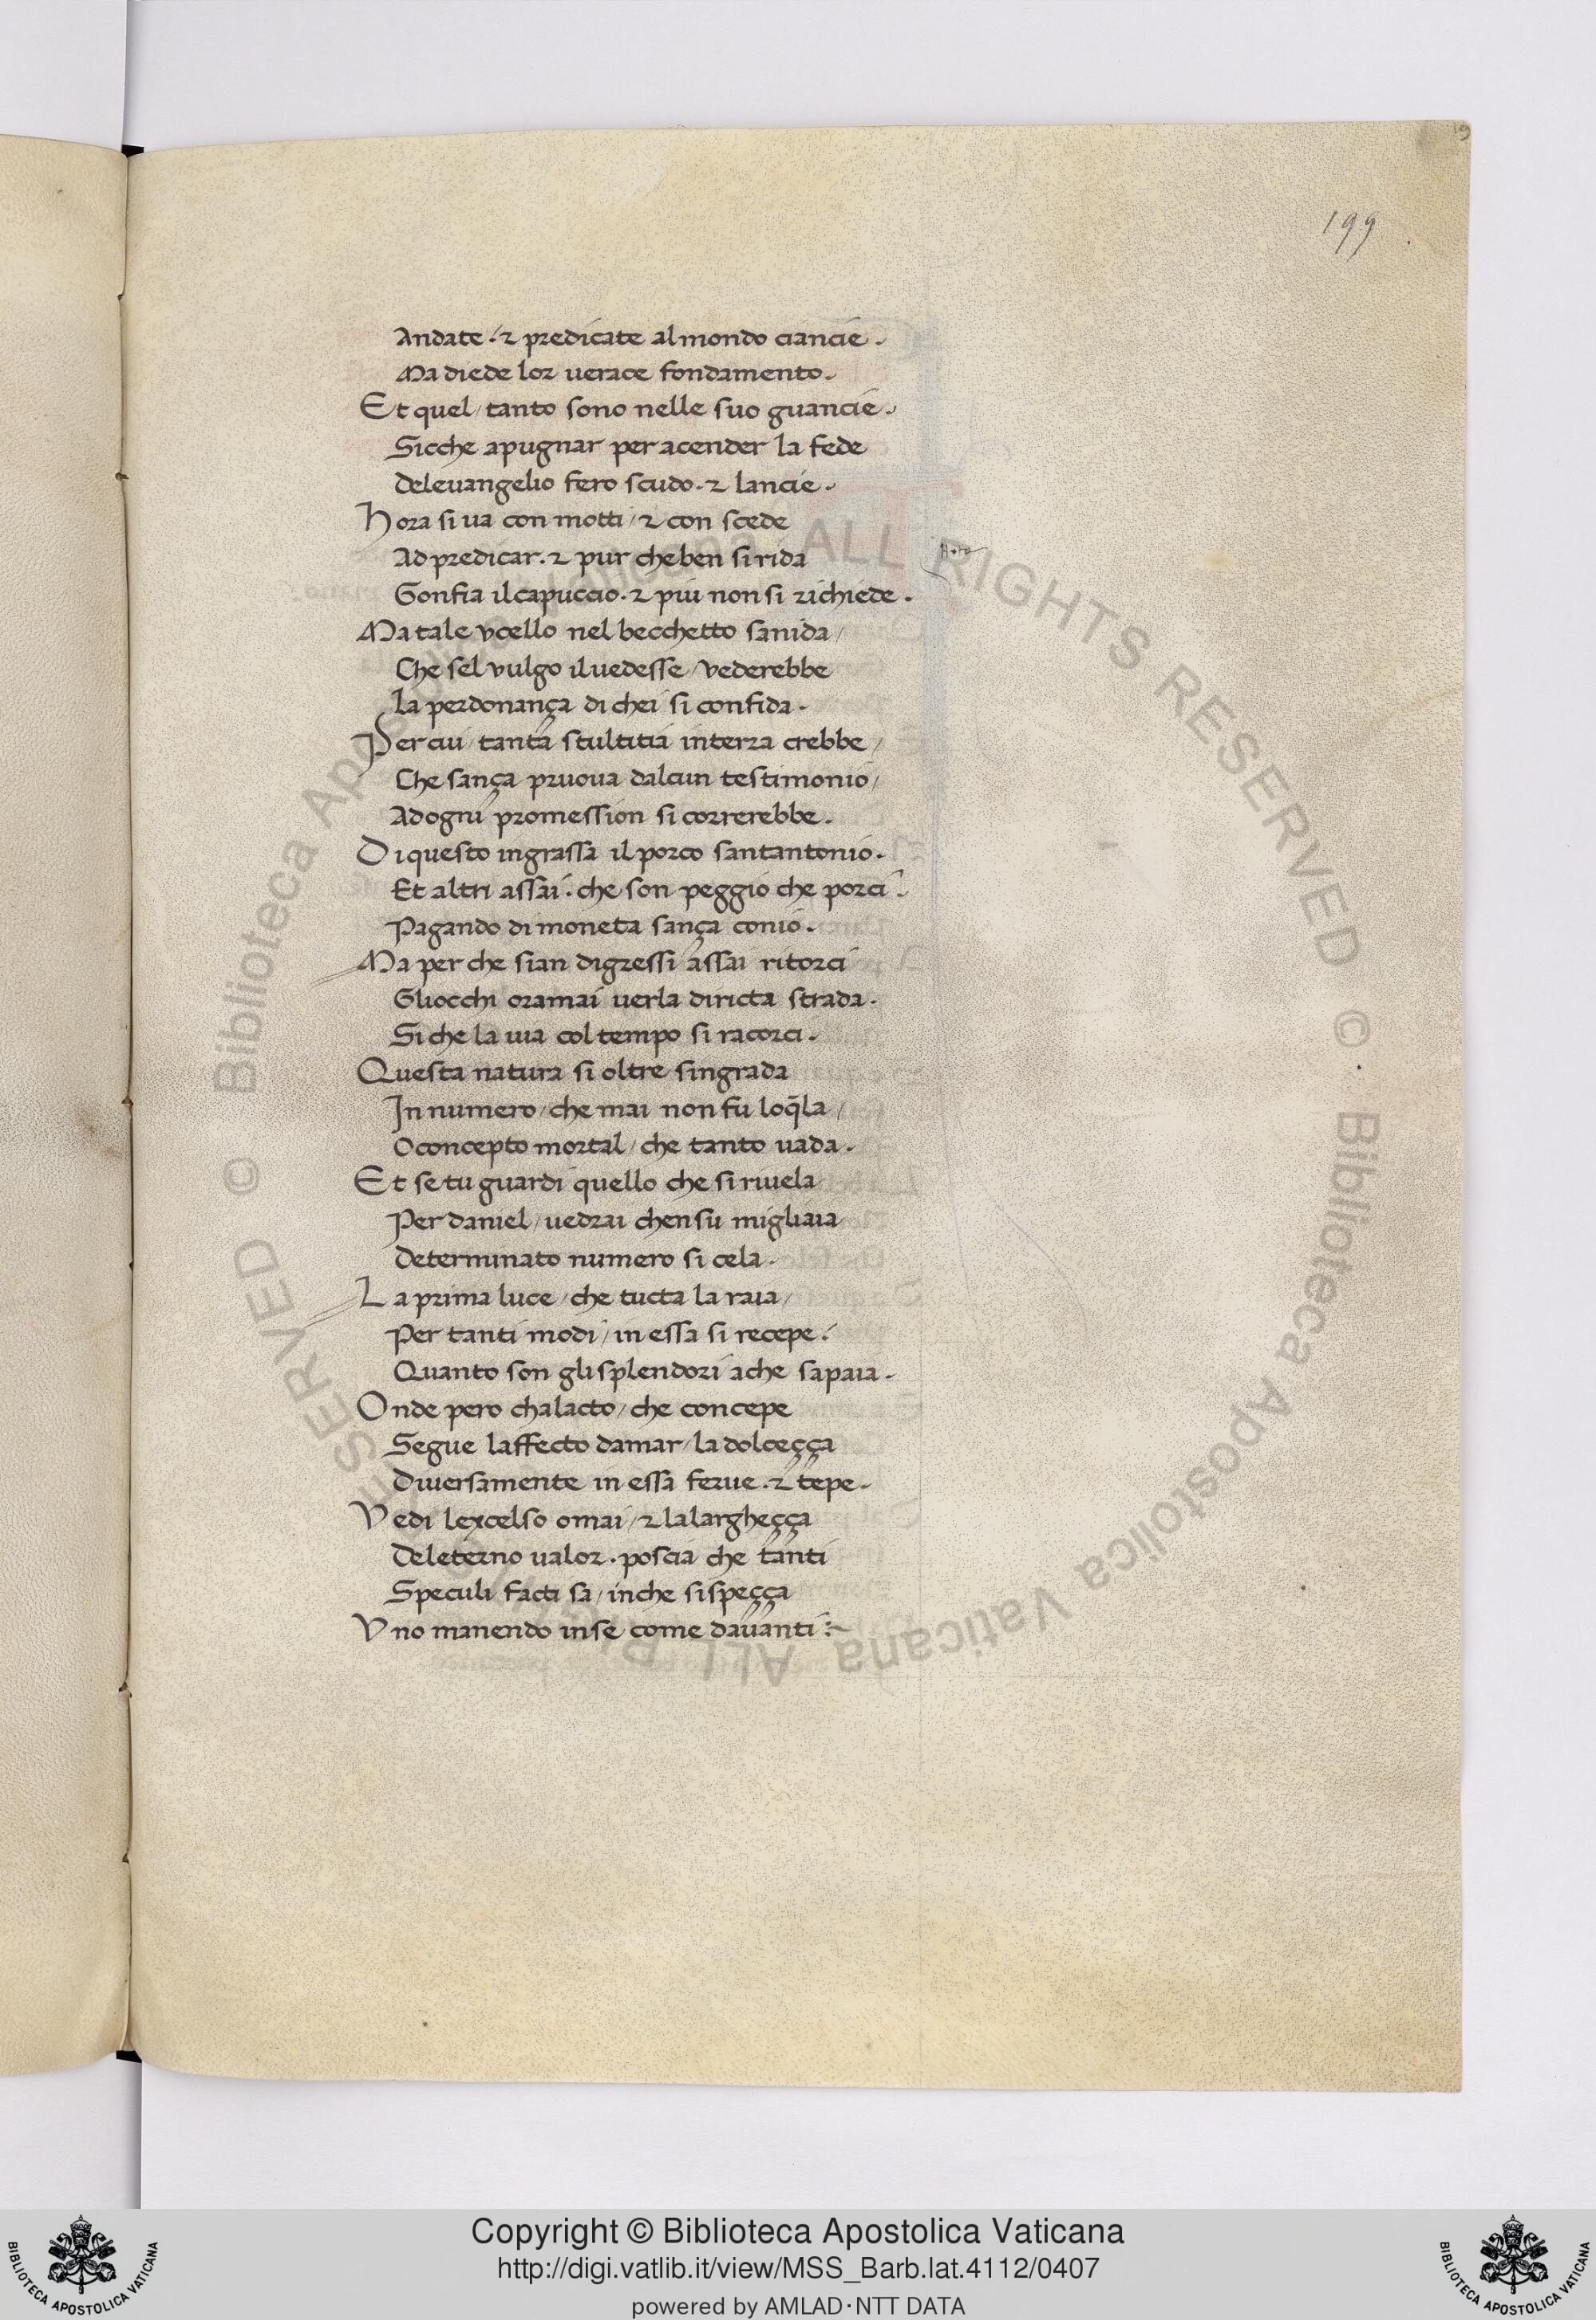 199
Andate · & predicate al mondo ciancie ·
Ma diede lor uerace fondamento ·
Et quel / tanto sono nelle suo guancie ·
Sicche apugnar per acender la fede
Deleuangelio fero scudo · & lancie ·
Hora si ua con motti / & con scede
Ad predicar · & pur che ben si rida
Gonfia il capuccio · & piu non si richiede ·
Ma tale vcello nel becchetto sanida /
Che sel vulgo il uedesse / vederebbe
La perdonança di chei si confida ·
Per cui / tanta stultitia in terra crebbe /
Che sança pruoua dalcun testimonio /
Ad ogni promession si correrebbe ·
Di questo ingrassa il porco santantonio ·
Et altri assai · che son peggio che porci ·
Pagando di moneta sança conio ·
Ma per che sian digressi assai ritorci
Gliocchi oramai uerla diricta strada ·
Si che la uia col tempo si racorci ·
Questa natura si oltre singrada
In numero / che mai non fu loq̄la /
O concepto mortal / che tanto uada ·
Et se tu guardi quello che si riuela
Per daniel / uedrai chensu migliaia
Determinato numero si cela ·
La prima luce / che tucta la raia /
Per tanti modi / in essa si recepe ·
Quanto son gli splendori ache sapaia ·
Onde pero chalacto / che concepe
Segue laffecto damar / la dolceçça
Diuersamente in essa ferue · & tepe ·
Vedi lexcelso omai / & la largheçça
Deleterno ualor · poscia che tanti
Speculi facti sa / inche si speçça
Vno manendo inse come dauanti :~
Copyright © Biblioteca Apostolica Vaticana
http://digi.vatlib.it/view/MSS_Barb.lat.4112/0407
powered by AMLAD·NTT DATA